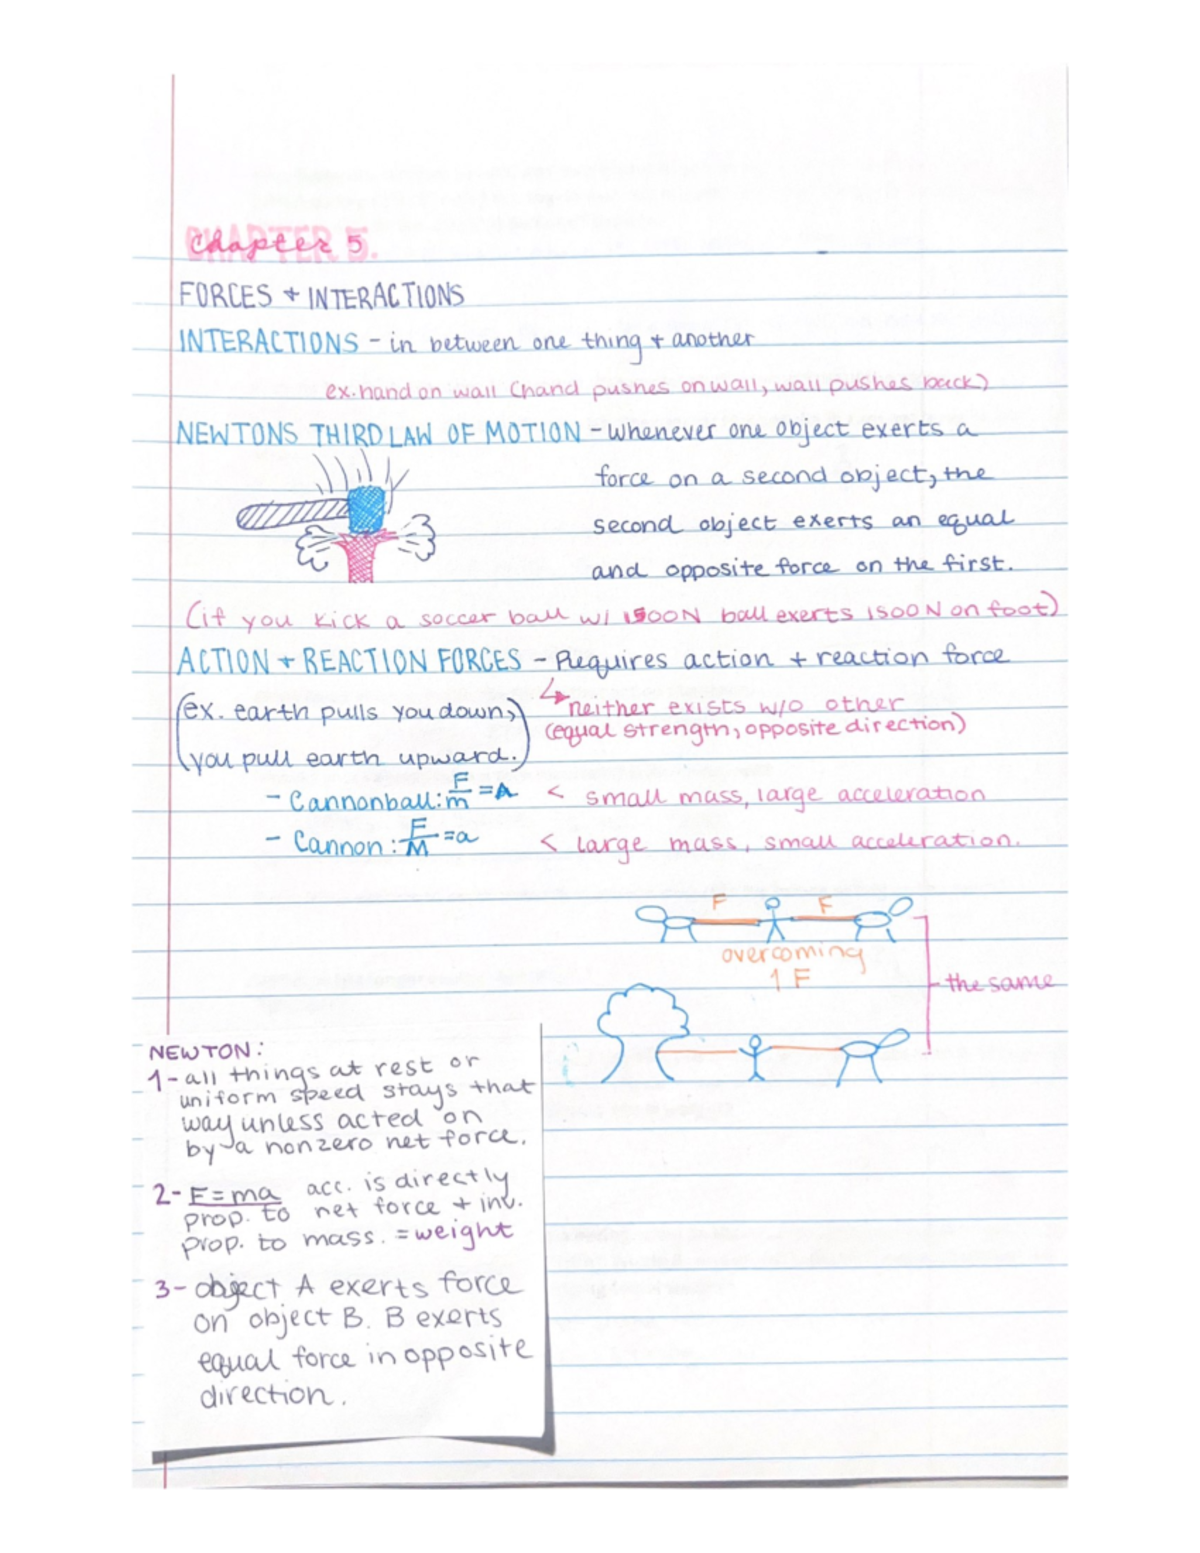 Chapter 5.
FORCES + INTERACTIONS
INTERACTIONS - in between one thing + another
ex. hand on wall (hand pushes on wall, wall pushes back)
NEWTONS THIRD LAW OF MOTION - Whenever one object exerts a
force on a second object, the
second object exerts an equal
and opposite force on the first.
(if you kick a soccer ball w/ 1500N ball exerts 1500N on foot)
ACTION + REACTION FORCES - Requires action + reaction force
neither exists w/o other
(equal strength, opposite direction)
(ex. earth pulls you down,
you pull earth upward.)
- Cannonball: F/m = A < small mass, large acceleration
- Cannon: F/M = a < large mass, small acceleration.
F F
overcoming
1 F
the same
NEWTON:
1- all things at rest or
uniform speed stays that
way unless acted on
by a nonzero net force.
2- F=ma acc. is directly
prop. to net force + inv.
prop. to mass. = weight
3- object A exerts force
on object B. B exerts
equal force in opposite
direction.